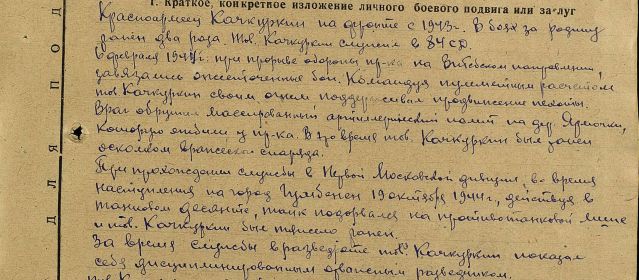 I. Краткое, конкретное изложение личного боевого подвига или заслуг
Красноармеец Качкуркин на фронте с 1943 г. В боях за родину
ранен два раза. Тов. Качкуркин служил в 84 сд.
В феврале 1944 г. при прорыве обороны пр-ка на Витебском направлении,
завязались ожесточенные бои. Командуя пулеметным расчетом
тов. Качкуркин своим огнем поддерживал продвижение пехоты.
Враг обрушил массированный артиллерийский налет на дер.
которую отбили у пр-ка. В это время тов. Качкуркин был ранен
осколком вражеского снаряда.
При прохождении службы в Первой Московской дивизии, во время
наступления на город Гумбенен 19 октября 1944 г., действуя в
танковом десанте, танк подорвался на противотанковой мине
и тов. Качкуркин был тяжело ранен.
За время службы в разведроте тов. Качкуркин показал
себя дисциплинированным отважным разведчиком.
ДЛЯ ПОД